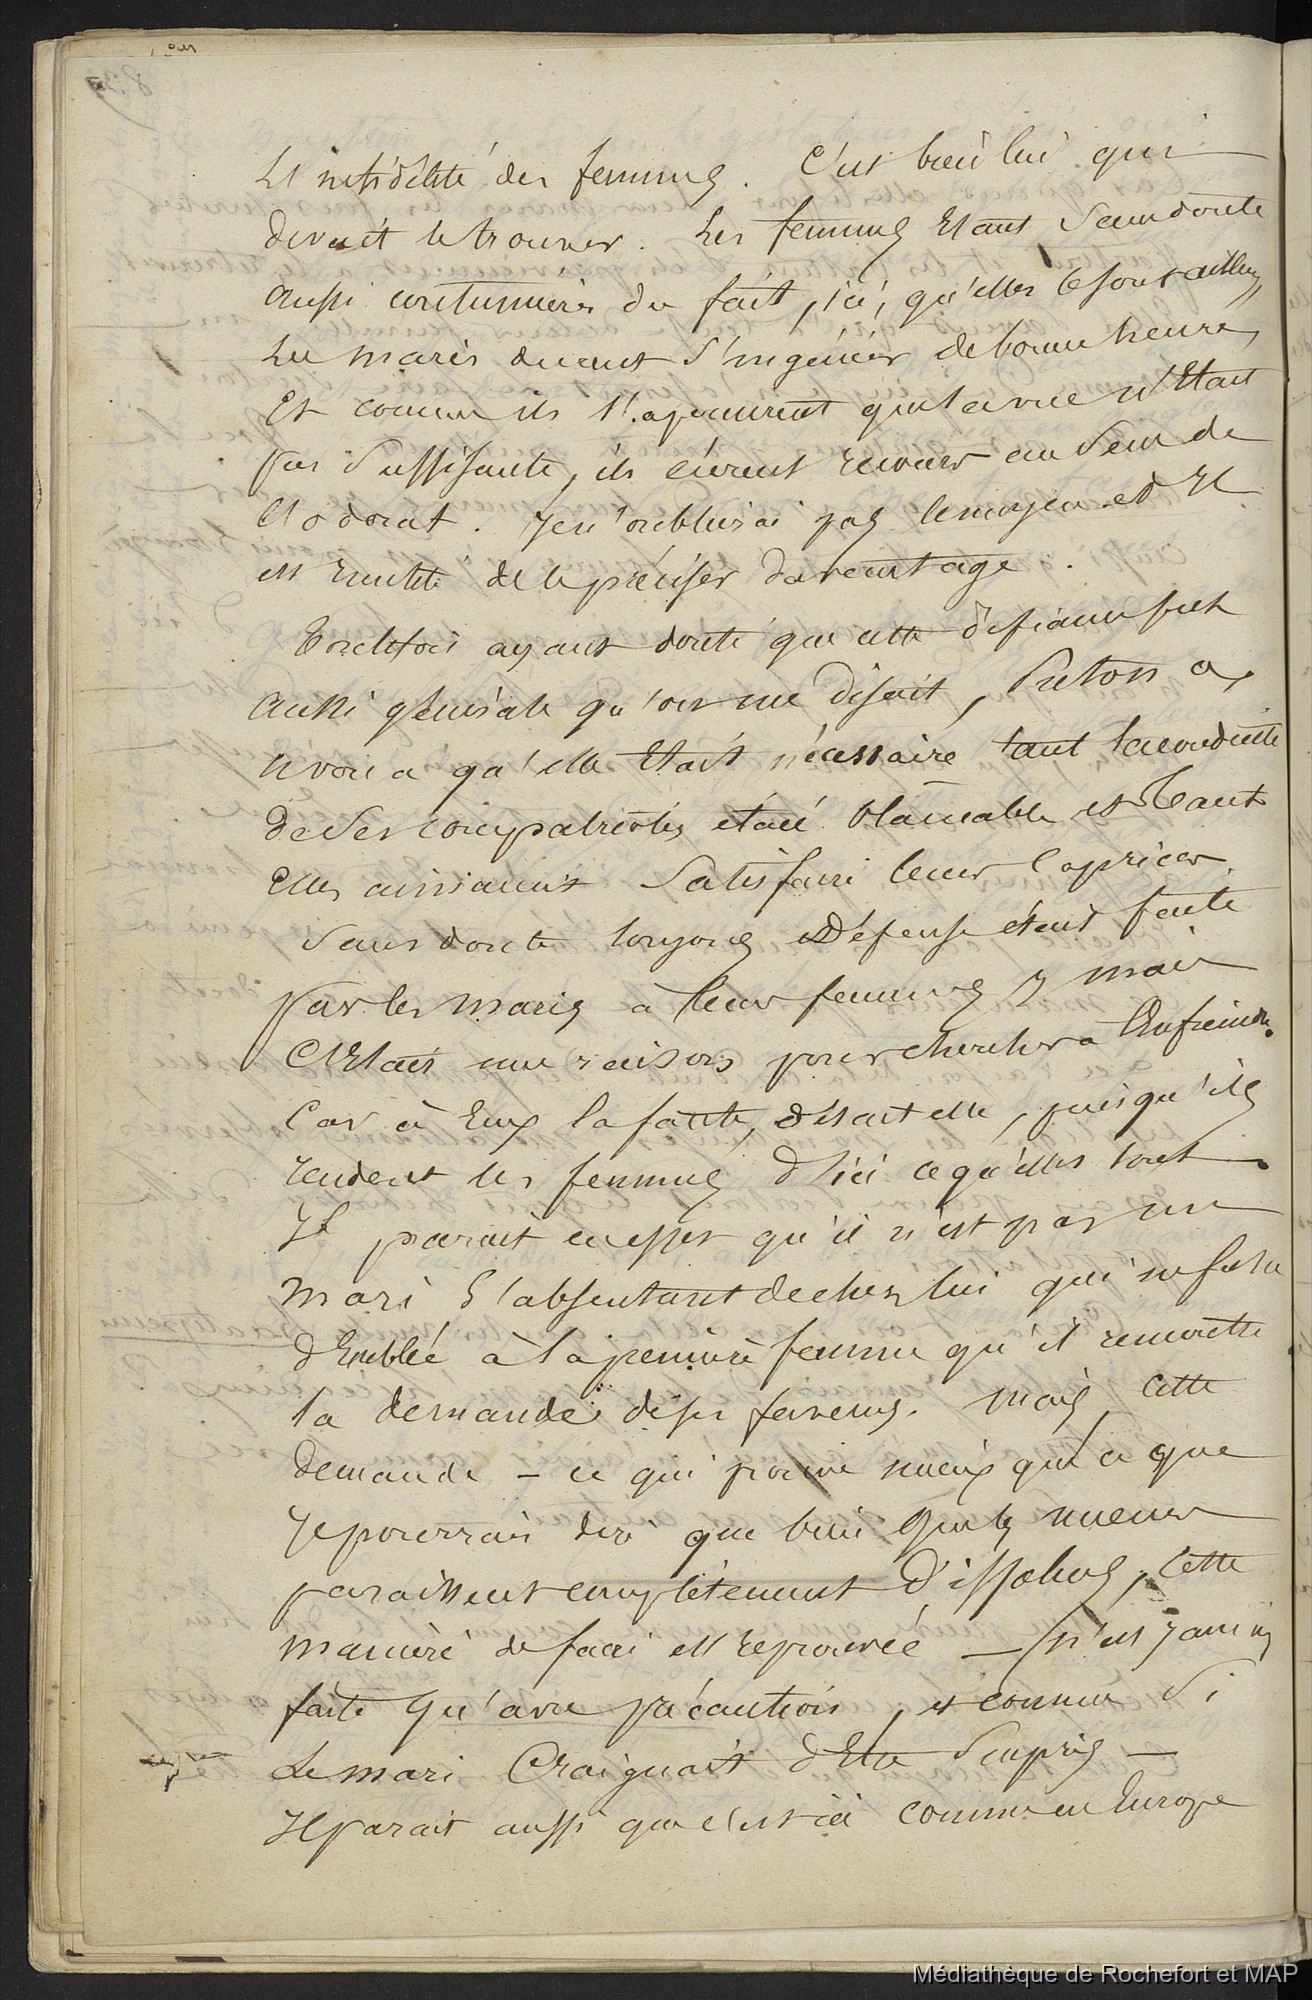 L'infidélité des femmes. C'est bien lui qui
devait le trouver. Les femmes Etant Sans doute
aussi coutumières du fait, ici, qu'elles le sont ailleurs,
Les maris durent S'ingénier de bonne heure,
Et comme ils s'aperçurent que la vue n'Etait
pas Suffisante, ils eurent recours au Sens de
l'odorat. Je n'oublierai pas le moyen et Il
est inutile de le préciser davantage.
Toutefois ayant douté que cette défiance fut
aussi générale qu'on me disait,
avoua qu'elle Etait nécessaire tant la conduite
de Ses compatriotes était blâmable et Tant
Elles aimaient Satisfaire leurs Caprices.
Sans doute toujours Défense était faite
par les maris à leurs femmes, mais
C'Etait une raison pour chercher à l'Enfreindre.
Car à Eux la faute, disait elle, puisqu'ils
rendent les femmes d'ici ce qu'elles sont.
Il parait en effet qu'il n'est pas un
mari S'absentant de chez lui qui ne fasse
d'Emblée à la première femme qu'il rencontre
la demande de ses faveurs. Mais cette
demande – ce qui prouve mieux que ce que
Je pourrais dire que bien que les moeurs
paraissent complétement dissolues, cette
manière de faire est reprouvée — n'est jamais
faite qu'avec précaution, et comme Si
Le mari Craignait d'Etre Surpris —
Il parait aussi que c'est ici comme en Europe
Médiathèque de Rochefort et MAP